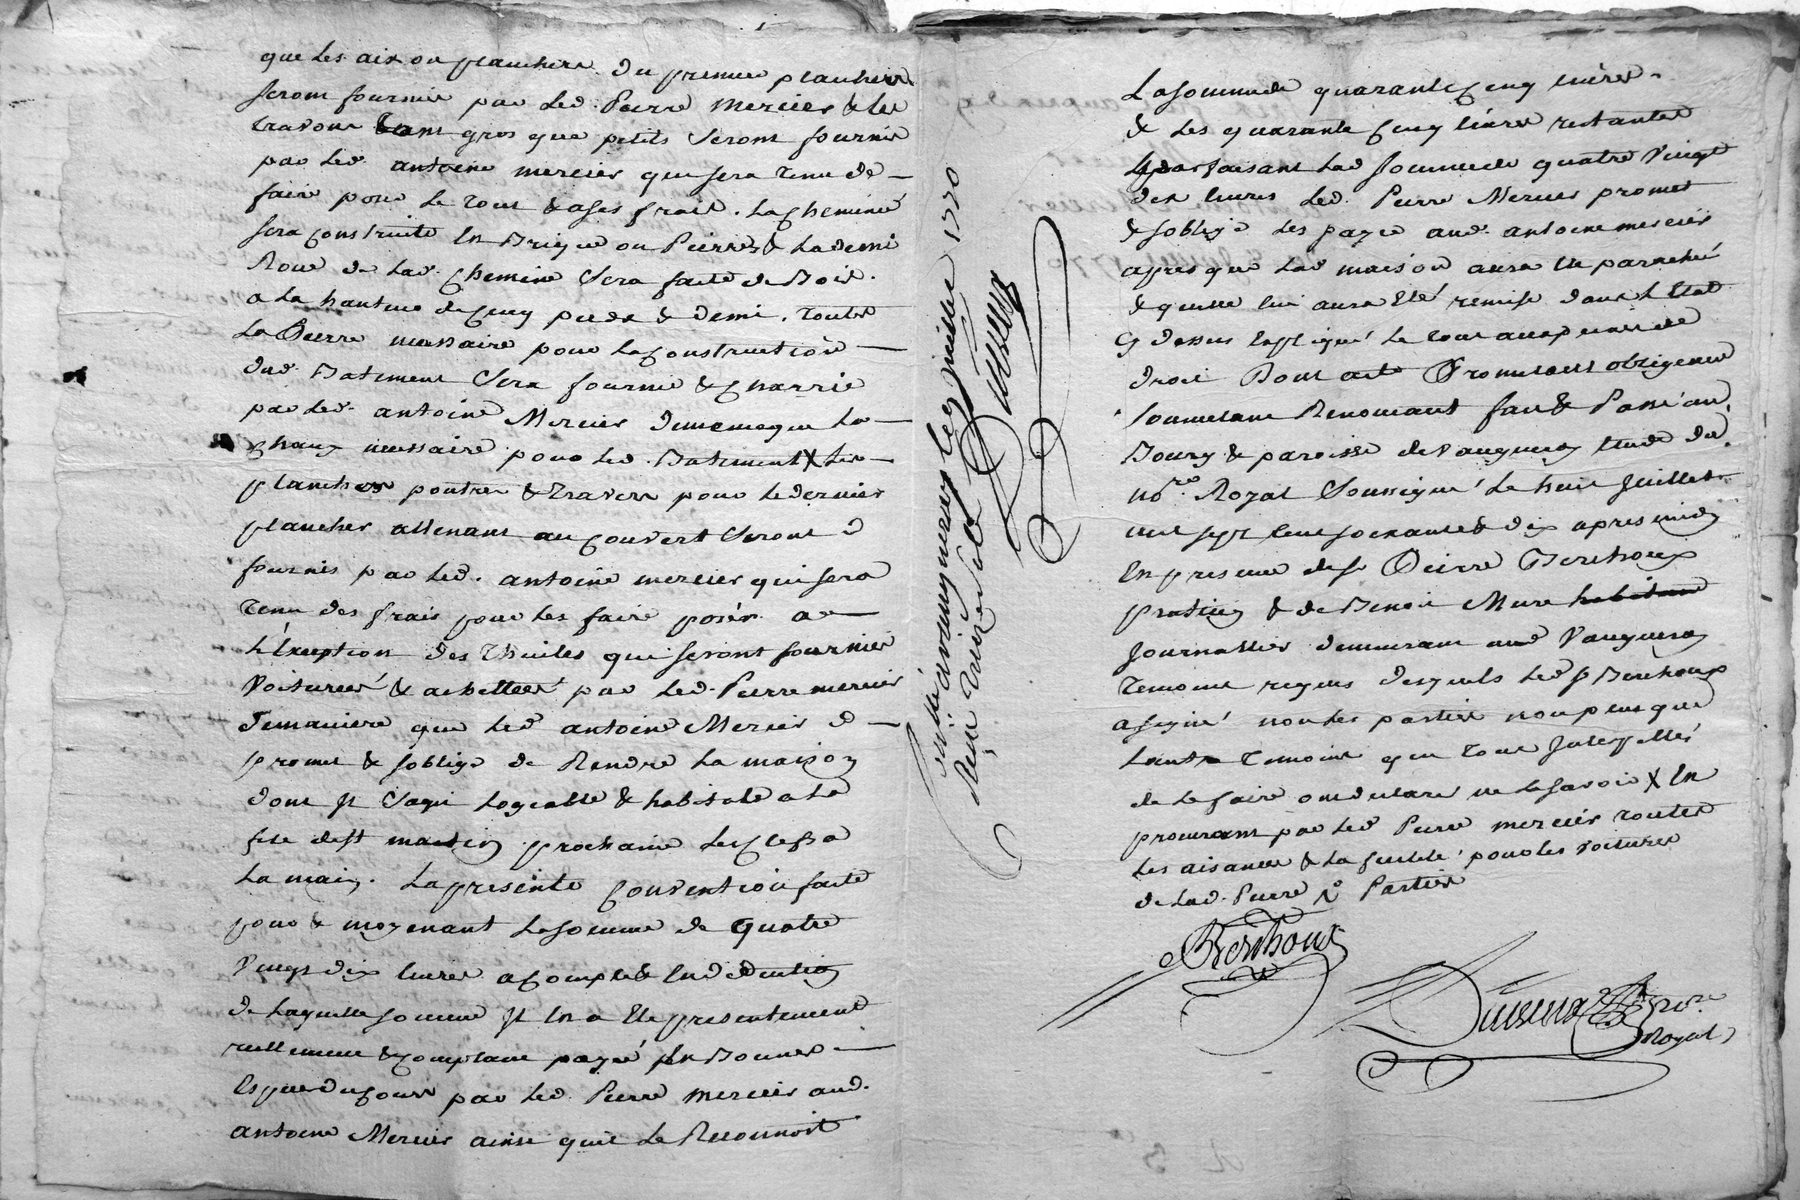 que les aix ou planchers du premier plancher
seront fournis par led. Pierre mercier & les
travons tant gros que petits seront fournis
par led. antoine mercier qui sera tenu de
faire poser le tout & a ses frais. la cheminé
sera construite en Brique ou Pierres & la demi
Roue de lad. chemine sera faite de Bois.
a la hauteur de cinq pieds & demi. toutes
la Pierre nessaire pour la construction
dud. Batiment sera fournie & charrié
par led. antoine Mercier de meme que la
chaux nessaire pour led. Batiment X les
planches poutres & travers pour le dernier
plancher attenant au couvert seront
fournis par led. antoine mercier qui sera
tenu des frais pour les faire posér a
l'éxeption des Thuiles qui seront fournies
voiturées & achettées par led. Pierre mercier
de maniere que led. antoine Mercier
promet & s'oblige de Rendre la maison
dont il s'agit logeable & habitable a la
fete de st martin prochaine les clefs a
la main. la presente convention faite
pour & moyenant la somme de quatre
vingt dix livres a compte & en deduction
de laquelle somme il en a été presentement
reellement & comptant payé en Bonnes
especes du cours par led. Pierre mercier aud.
antoine Mercier ainsi qu'il le Reconnoit
Controllé a vaugneray le juillet 1770
Reçu treize sols
la somme de quarante cinq livres
& les quarante cinq livres restantes
parfaisant lad. somme de quatre vingt
dix livres led. Pierre Mercier promet
& s'oblige les payer aud. antoine mercier
apres que lad. maison aura été parachevé
& quelle lui aura été remise dans l'Etat
cy dessus expliqué le tout aux peines de
droit Dont acte Promettant obligeant
soumettant Renonçant fait & Passé au
Bourg & paroisse de vaugneray étude du
no.re Royal soussigné le huit juillet
mil sept cent soixante & dix apres midy
en presence de sr. Pierre Berthoux
praticien & de Benoit Mure habitant
journallier demeurant aud. vaugneray
temoins requis desquels led. sr Berthoux
a signé non les parties non plus que
l'autre temoins qui tous interpellés
de le faire ont declaré ne le savoir X en
procurant par led. Pierre mercier toutes
les aisances & la facilité pour les voitures
de lad. Pierre Parties
Berthoux
no.re
Royal